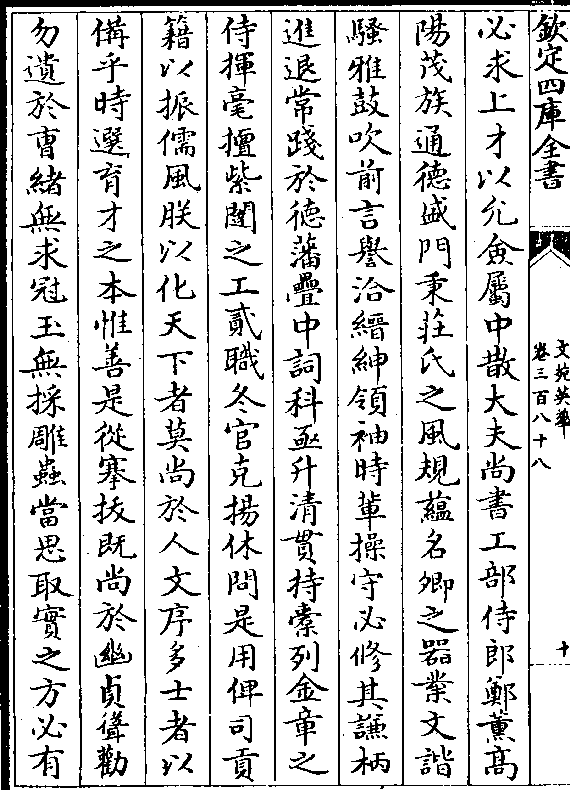 欽定四庫全書
文苑英華
卷三百八十八
十
必求上才以允僉屬中散大夫尚書工部侍郎鄭薰髙
陽茂族通德盛門秉莊氏之風規蘊名卿之器業文諧
騷雅鼓吹前言譽洽縉紳領袖時軰操守必修其謙柄
進退常踐於徳藩疊中詞科亟升清貫持槖列金章之
侍揮毫擅紫闥之工貳職冬官克揚休問是用俾司貢
籍以振儒風朕以化天下者莫尚於人文序多士者以
備乎時選育才之本惟善是從搴抜既尚於幽貞聳勸
勿遺於曺緒無求冠玉無採雕蟲當思取實之方必有